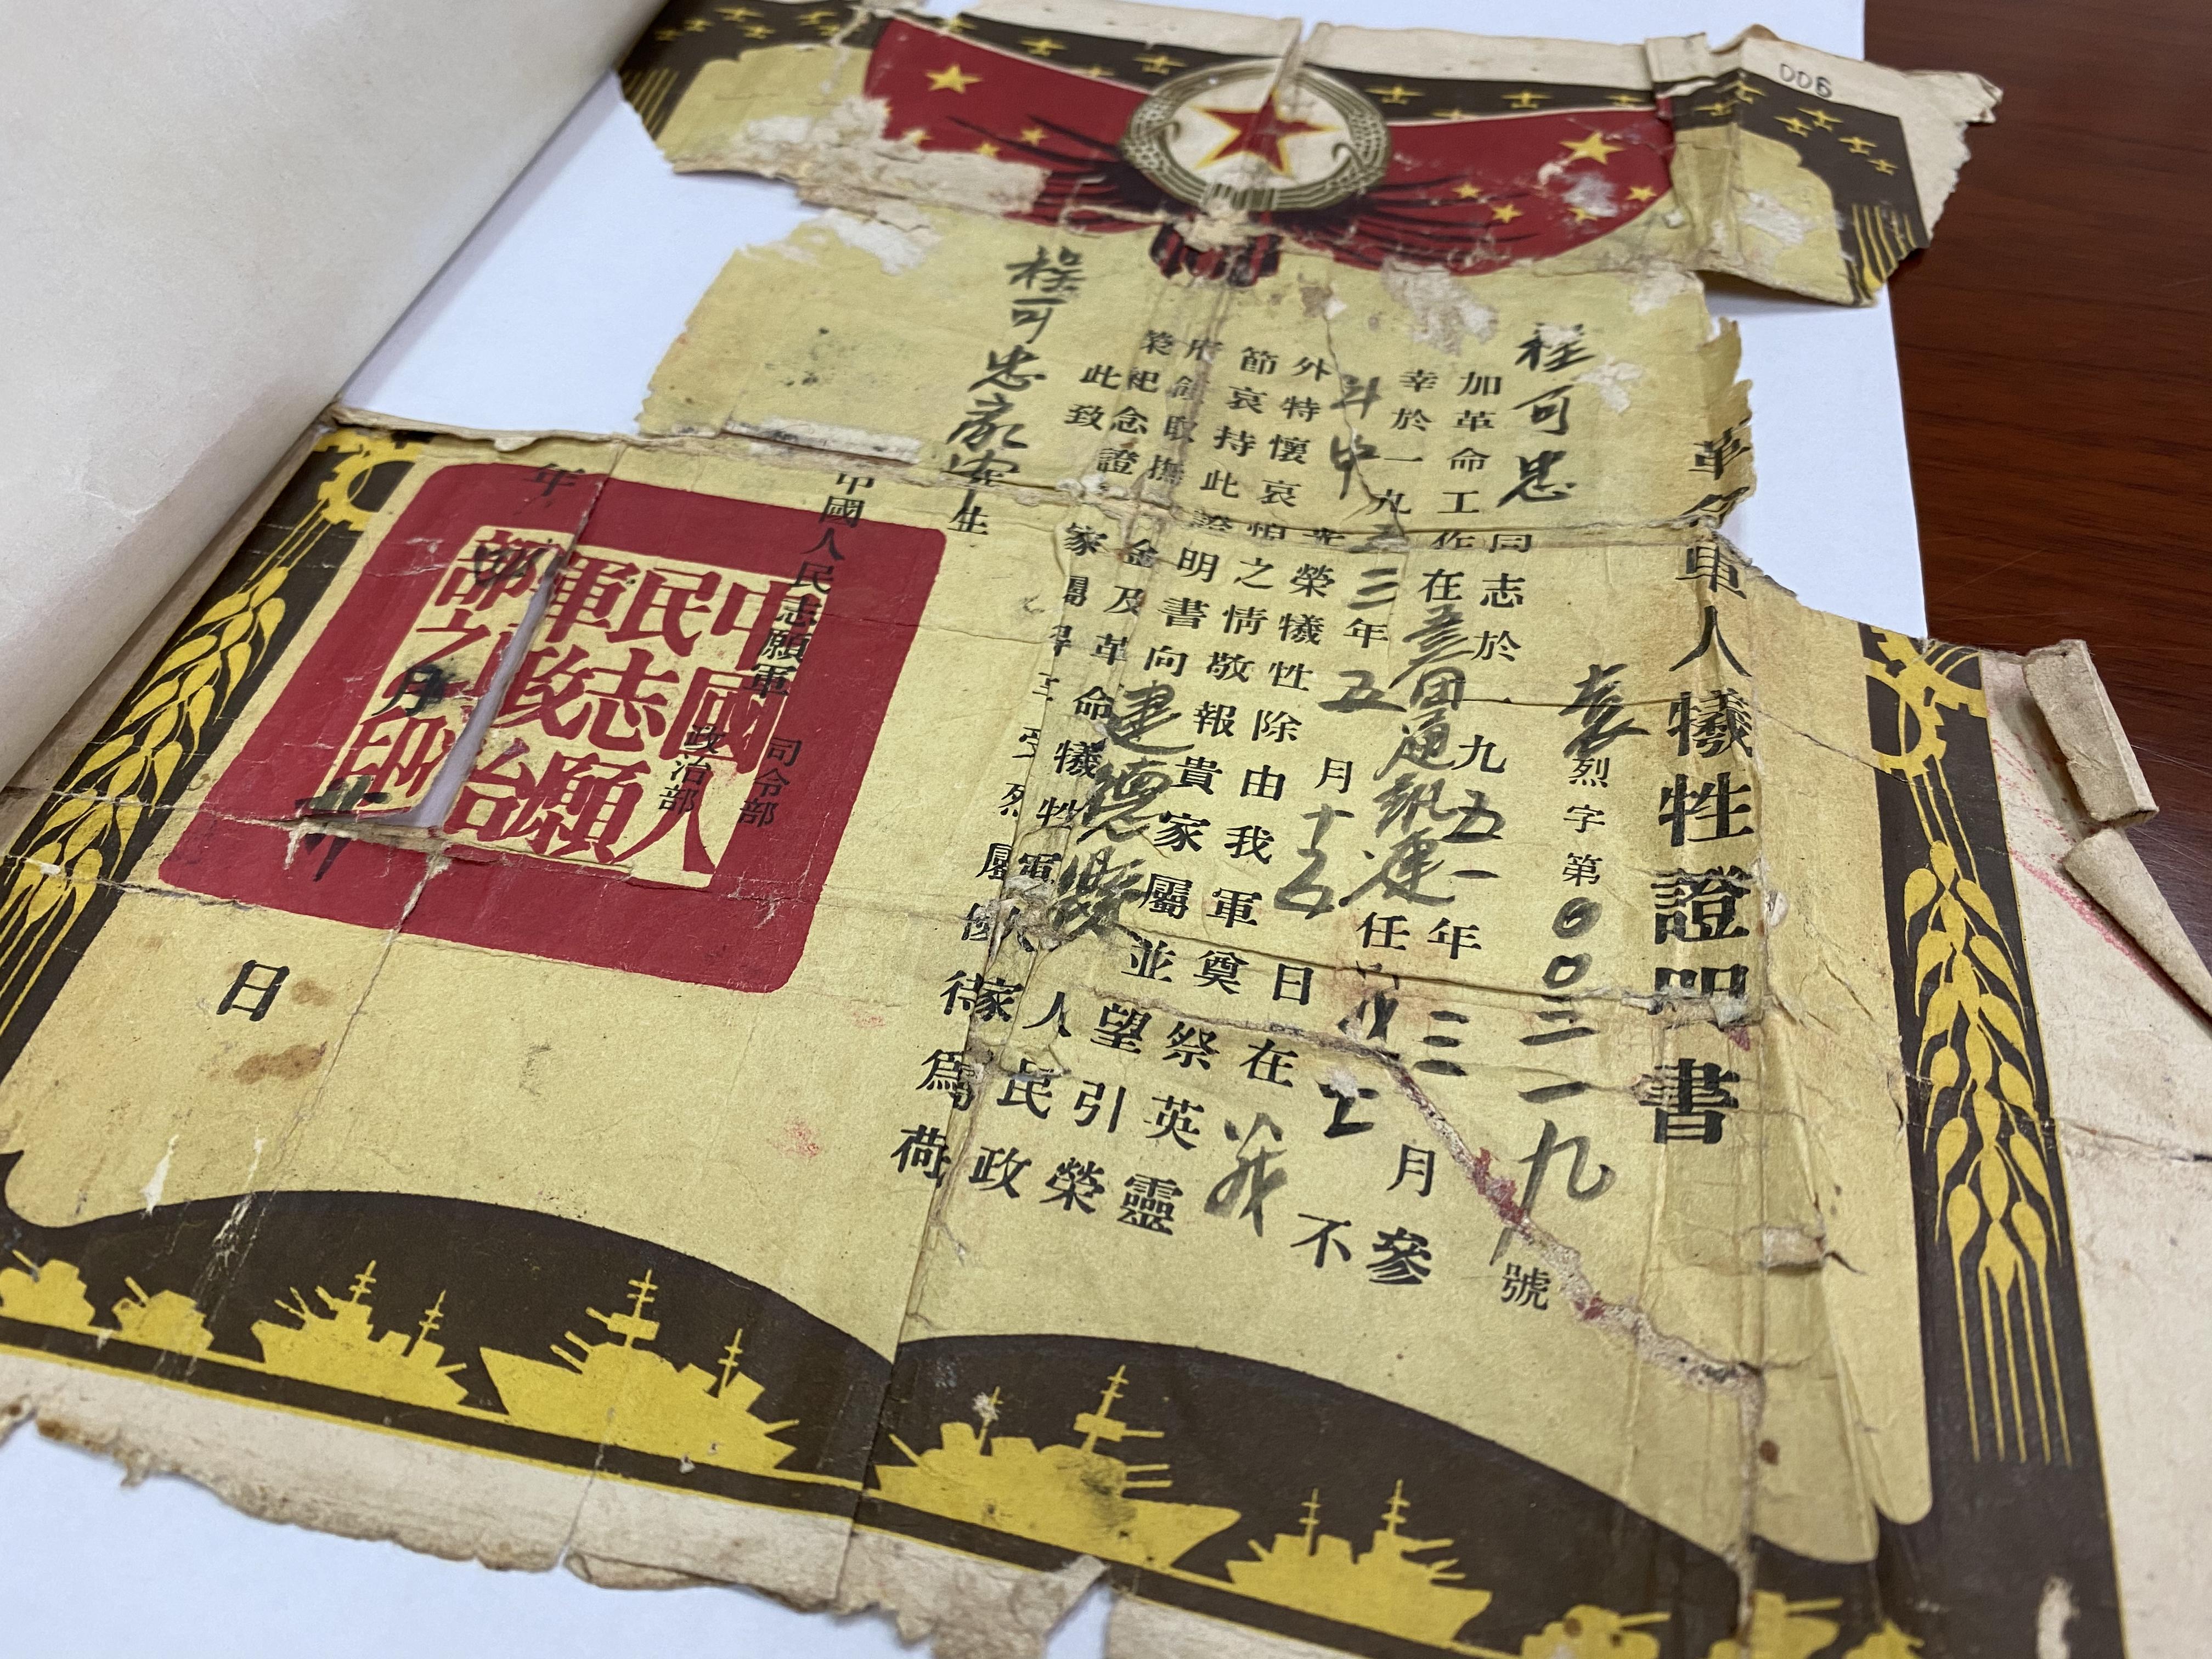 006
革命軍人犧牲證明書
烈字第00三一九號
程可忠同志於一九五一年三月參
加革命工作在團通訊連任戰士不
幸於一九五三年五月十五日在
斗中光榮犧牲除由我軍奠祭英靈
外特懷哀悼之情敬報貴家屬並望引榮
節哀持此證明書向建德縣人民政
府領取撫金及革命犧牲軍人家
念證家屬得享受烈屬優待為荷
此致
程可忠家
中國人民志願軍
司令部
政治部
中國人民志願軍政治部之印
年月日